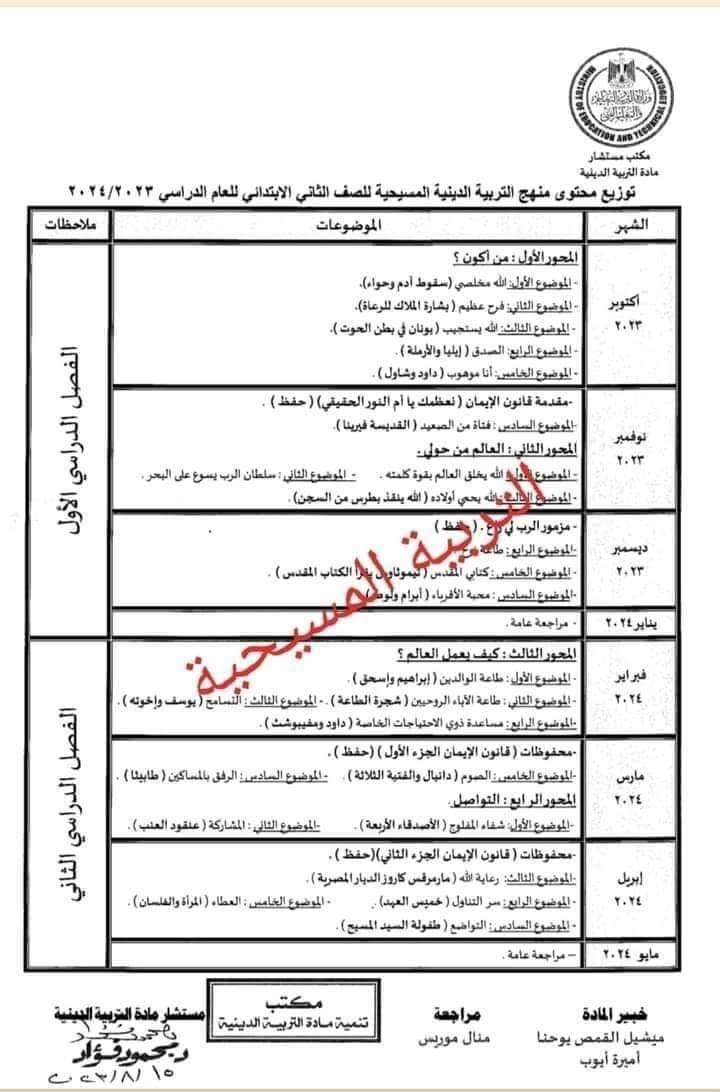 MINISTRY OF EDUCATION AND TECHNICAL EDUCATION
مكتب مستشار
مادة التربية الدينية
توزيع محتوى منهج التربية الدينية المسيحية للصف الثاني الابتدائي للعام الدراسي ٢٠٢٤/٢٠٢٣
الشهر
الموضوعات
ملاحظات
أكتوبر
٢٠٢٣
المحور الأول : من أكون ؟
- الموضوع الأول: الله مخلصي (سقوط آدم وحواء).
- الموضوع الثاني: فرح عظيم ( بشارة الملاك للرعاة).
- الموضوع الثالث: الله يستجيب ( يونان في بطن الحوت ).
- الموضوع الرابع: الصدق ( إيليا والأرملة ) .
- الموضوع الخامس: أنا موهوب ( داود وشاول ) .
الفصل الدراسي الأول
نوفمبر
٢٠٢٣
-مقدمة قانون الإيمان ( نعظمك يا أم النور الحقيقي) ( حفظ ) .
-الموضوع السادس: فتاة من الصعيد ( القديسة فيرينا ) .
المحور الثاني : العالم من حولي.
- الموضوع الأول: الله يخلق العالم بقوة كلمته . - الموضوع الثاني : سلطان الرب يسوع على البحر .
- الموضوع الثالث: الله يحمي أولاده ( الله ينقذ بطرس من السجن).
ديسمبر
٢٠٢٣
- مزمور الرب لي راع . ( حفظ )
-الموضوع الرابع: طاعة نوح
-الموضوع الخامس: كتابي المقدس ( تيموثاوس يقرأ الكتاب المقدس ) .
-الموضوع السادس : محبة الأقرباء ( أبرام ولوط ) .
يناير ٢٠٢٤
- مراجعة عامة .
فبراير
٢٠٢٤
المحور الثالث : كيف يعمل العالم ؟
- الموضوع الأول: طاعة الوالدين ( إبراهيم وإسحق ) .
- الموضوع الثاني: طاعة الآباء الروحيين ( شجرة الطاعة ) . - الموضوع الثالث: التسامح ( يوسف وأخوته ) .
- الموضوع الرابع: مساعدة ذوي الاحتياجات الخاصة ( داود ومفيبوشث ) .
الفصل الدراسي الثاني
مارس
٢٠٢٤
-محفوظات ( قانون الإيمان الجزء الأول ) (حفظ ) .
-الموضوع الخامس: الصوم ( دانيال والفتية الثلاثة ) . -الموضوع السادس: الرفق بالمساكين ( طابيثا ) .
المحور الرابع : التواصل.
-الموضوع الأول: شفاء المفلوج ( الأصدقاء الأربعة ) . -الموضوع الثاني: المشاركة ( عنقود العنب ) .
إبريل
٢٠٢٤
-محفوظات ( قانون الإيمان الجزء الثاني)(حفظ ) .
-الموضوع الثالث: رعاية الله ( مارمرقس كاروز الديار المصرية ) .
-الموضوع الرابع: سر التناول ( خميس العهد) . - الموضوع الخامس: العطاء ( المرأة والفلسان ) .
-الموضوع السادس: التواضع ( طفولة السيد المسيح ) .
مايو ٢٠٢٤
– مراجعة عامة .
التربية المسيحية
خبير المادة
ميشيل القمص يوحنا
أميرة أيوب
مراجعة
منال موريس
مكتب
تنمية مادة التربية الدينية
مستشار مادة التربية الدينية
د. محمود فؤاد
٢٠٢٣/٨/١٥